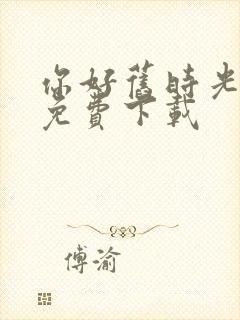 你好舊時光
免費下載
傅渝